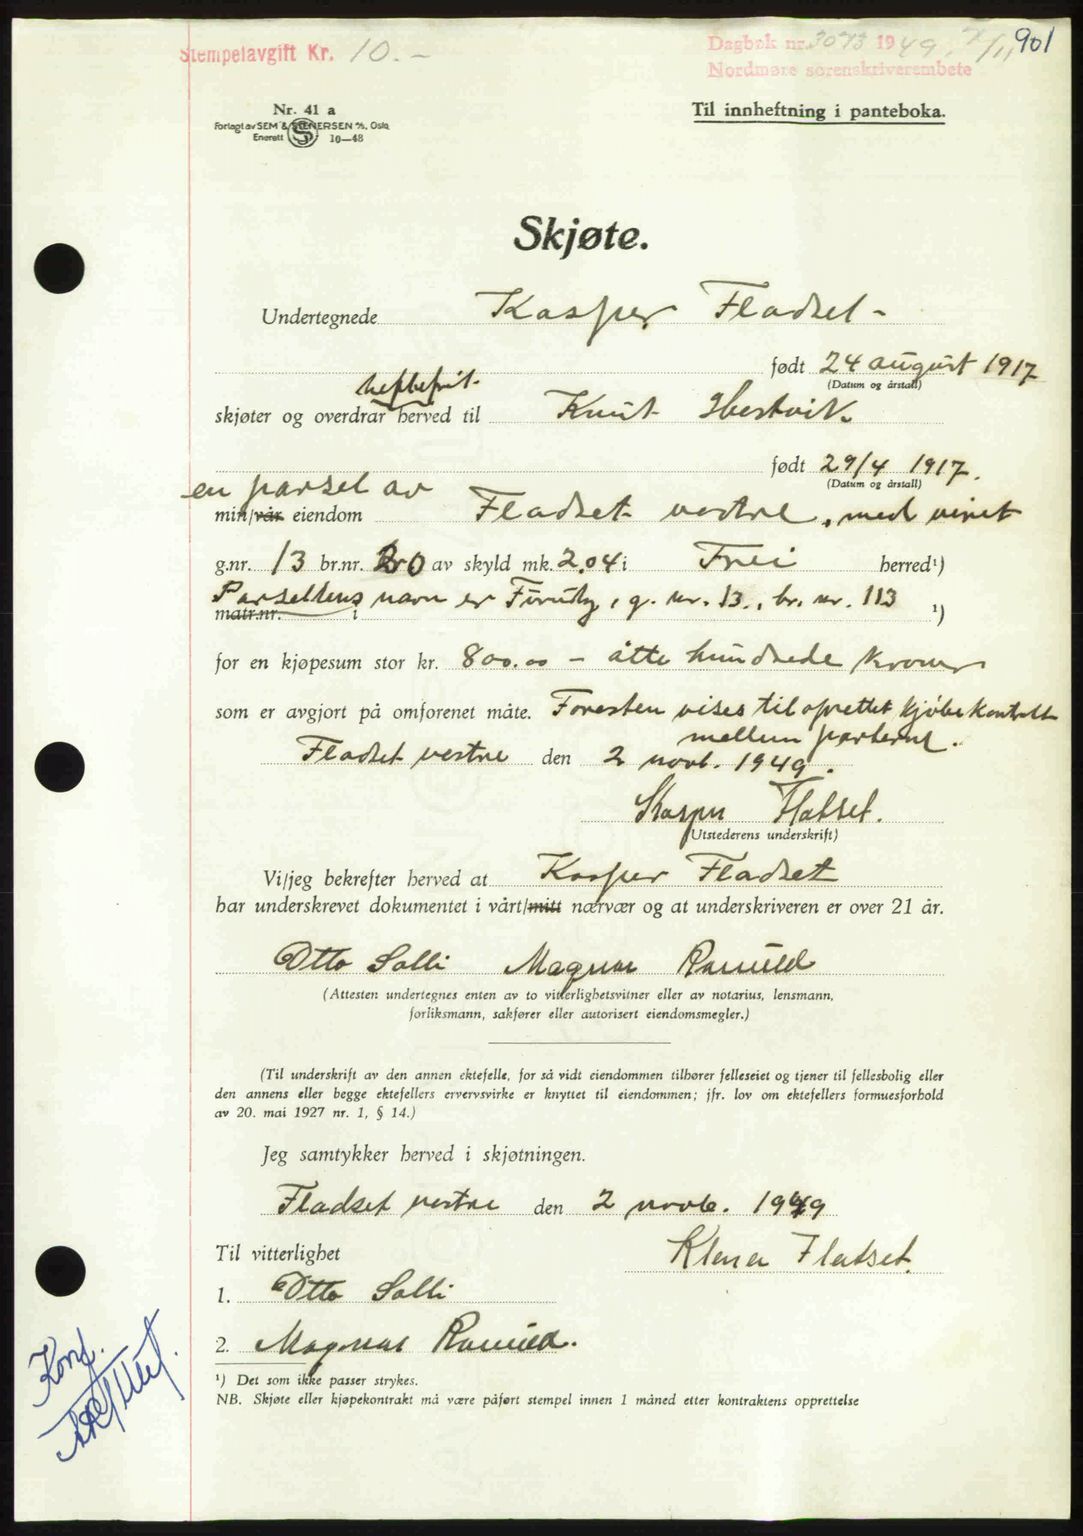 Stempelavgift Kr. 10.-
Dagbok nr. 3073 1949. 7/11 901
Nordmøre sorenskriverembete
Nr. 41 a
Forlagt av SEM & STENERSEN A/S, Oslo
Enerett S 10—48
Til innheftning i panteboka.
Skjøte.
Undertegnede Kasper Fladset -
født 24 august 1917
(Datum og årstall)
heftefrit-
skjøter og overdrar herved til Knut
født 29/4 1917.
(Datum og årstall)
en parsel av
min/vår eiendom Fladset vestre, med
g.nr. 13 br.nr. 20 av skyld mk. 2.04 i Frei herred¹)
Parsellens navn er g. nr. 13., br. nr. 113
matr.nr. i ¹)
for en kjøpesum stor kr. 800.00 - åtte hundrede kroner
som er avgjort på omforenet måte. Foresten vises til oprettet kjøbekontrakt
mellem parterne.
Fladset vestre den 2 novb. 1949.
Kasper Flatset.
(Utstederens underskrift)
Vi/jeg bekrefter herved at Kasper Fladset
har underskrevet dokumentet i vårt/mitt nærvær og at underskriveren er over 21 år.
Otto Solli Magnar
(Attesten undertegnes enten av to vitterlighetsvitner eller av notarius, lensmann,
forliksmann, sakfører eller autorisert eiendomsmegler.)
(Til underskrift av den annen ektefelle, for så vidt eiendommen tilhører felleseiet og tjener til fellesbolig eller
den annens eller begge ektefellers ervervsvirke er knyttet til eiendommen; jfr. lov om ektefellers formuesforhold
av 20. mai 1927 nr. 1, § 14.)
Jeg samtykker herved i skjøtningen.
Fladset vestre den 2 novb. 1949
Til vitterlighet Klara Flatset.
1. Otto Solli
2. Magnar
¹) Det som ikke passer strykes.
NB. Skjøte eller kjøpekontrakt må være påført stempel innen 1 måned etter kontraktens opprettelse
Konf.